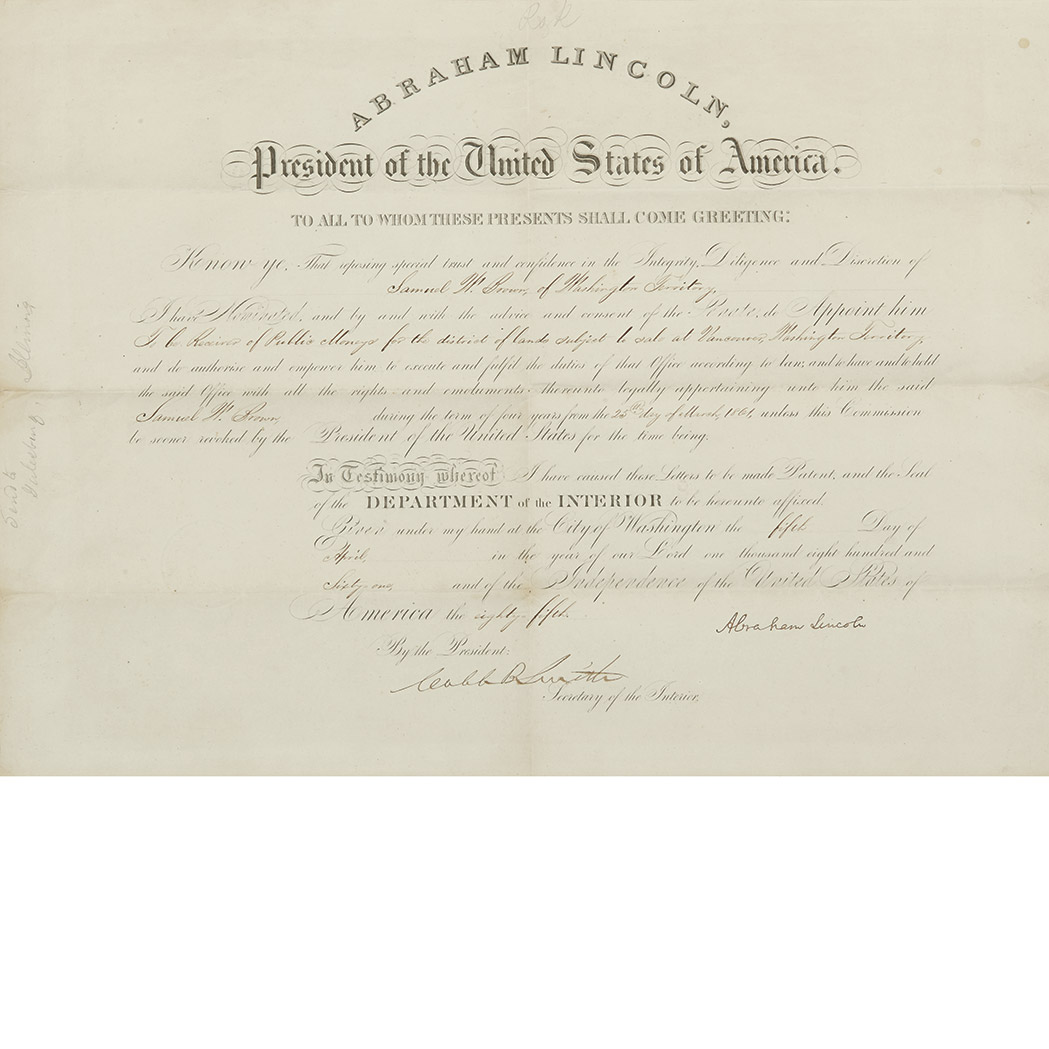 ABRAHAM LINCOLN,
President of the United States of America.
TO ALL TO WHOM THESE PRESENTS SHALL COME GREETING:
Know ye, That reposing special trust and confidence in the Integrity, Diligence and Discretion of
Samuel W. Brown, of Washington Territory,
I have Nominated, and by and with the advice and consent of the Senate, do Appoint him
To be Receiver of Public Moneys for the district of lands subject to sale at Vancouver, Washington Territory,
and do authorise and empower him to execute and fulfil the duties of that Office according to law; and to have and to hold
the said Office with all the rights and emoluments thereunto legally appertaining unto him the said
Samuel W. Brown, during the term of four years from the 25th day of March, 1861, unless this Commission
be sooner revoked by the President of the United States for the time being.
In Testimony whereof I have caused these Letters to be made Patent, and the Seal
of the DEPARTMENT of the INTERIOR to be hereunto affixed.
Given under my hand at the City of Washington the fifth Day of
April, in the year of our Lord one thousand eight hundred and
Sixty-one, and of the Independence of the United States of
America the eighty-fifth.
Abraham Lincoln
By the President:
Caleb B Smith
Secretary of the Interior.
Illinois